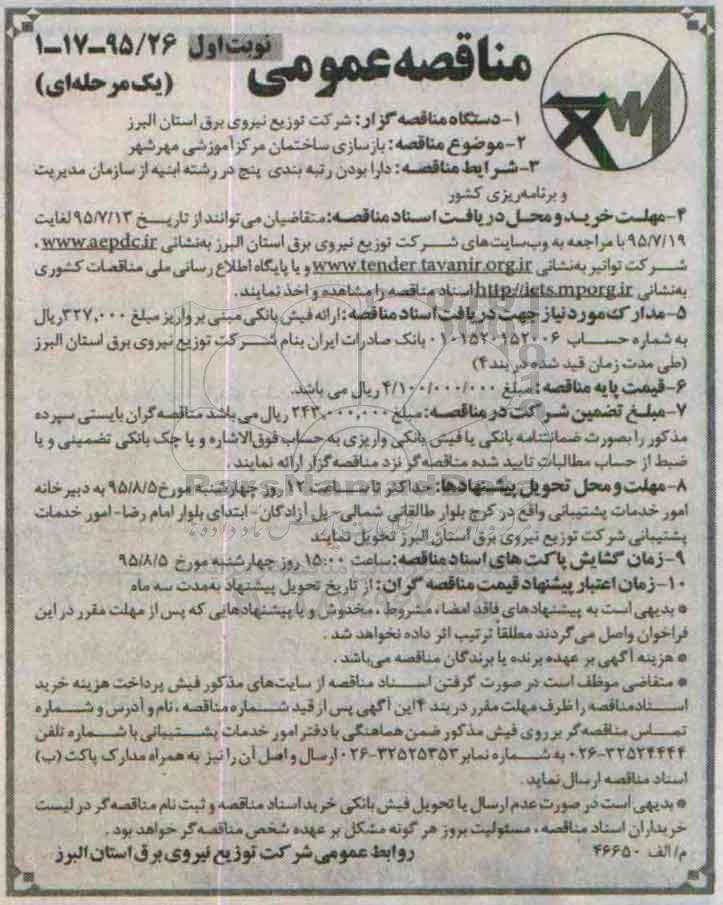 مناقصه عمومی نوبت اول ۹۵/۲۶-۱۷-۱
(یک مرحله‌ای)
۱-دستگاه مناقصه گزار: شرکت توزیع نیروی برق استان البرز
۲-موضوع مناقصه: بازسازی ساختمان مرکز آموزشی مهرشهر
۳-شرایط مناقصه: دارا بودن رتبه بندی پنج در رشته ابنیه از سازمان مدیریت
و برنامه‌ریزی کشور
۴-مهلت خرید و محل دریافت اسناد مناقصه: متقاضیان می‌توانند از تاریخ ۹۵/۷/۱۳ لغایت
۹۵/۷/۱۹ با مراجعه به وب‌سایت‌های شرکت توزیع نیروی برق استان البرز به‌نشانی www.aepdc.ir ،
شرکت توانیر به‌نشانی www.tender.tavanir.org.ir و یا پایگاه اطلاع رسانی ملی مناقصات کشوری
به‌نشانی http://iets.mporg.ir اسناد مناقصه را مشاهده و اخذ نمایند.
۵-مدارک مورد نیاز جهت دریافت اسناد مناقصه: ارائه فیش بانکی مبنی بر واریز مبلغ ۳۲۷,۰۰۰ ریال
به شماره حساب ۰۱۰۱۵۲۰۱۵۲۰۰۶ بانک صادرات ایران بنام شرکت توزیع نیروی برق استان البرز
(طی مدت زمان قید شده در بند۴)
۶-قیمت پایه مناقصه: مبلغ ۴/۱۰۰/۰۰۰/۰۰۰ ریال می باشد.
۷-مبلغ تضمین شرکت در مناقصه: مبلغ ۲۴۳,۰۰۰,۰۰۰ ریال می‌باشد مناقصه‌گران بایستی سپرده
مذکور را بصورت ضمانتنامه بانکی یا فیش بانکی واریزی به حساب فوق‌الاشاره و یا چک بانکی تضمینی و یا
ضبط از حساب مطالبات تایید شده مناقصه‌گر نزد مناقصه‌گزار ارائه نمایند.
۸-مهلت و محل تحویل پیشنهادها: حداکثر تا ساعت ۱۲ روز چهارشنبه مورخ ۹۵/۸/۵ به دبیرخانه
امور خدمات پشتیبانی واقع در کرج بلوار طالقانی شمالی-پل آزادگان-ابتدای بلوار امام رضا-امور خدمات
پشتیبانی شرکت توزیع نیروی برق استان البرز تحویل نمایند
۹-زمان گشایش پاکت های اسناد مناقصه: ساعت ۱۵:۰۰ روز چهارشنبه مورخ ۹۵/۸/۵
۱۰-زمان اعتبار پیشنهاد قیمت مناقصه گران: از تاریخ تحویل پیشنهاد به‌مدت سه ماه
* بدیهی است به پیشنهادهای فاقد امضاء، مشروط، مخدوش و یا پیشنهادهایی که پس از مهلت مقرر در این
فراخوان واصل می‌گردند مطلقاً ترتیب اثر داده نخواهد شد.
* هزینه آگهی بر عهده برنده یا برندگان مناقصه می‌باشد.
* متقاضی موظف است در صورت گرفتن اسناد مناقصه از سایت‌های مذکور فیش پرداخت هزینه خرید
اسناد مناقصه را ظرف مهلت مقرر در بند ۴ این آگهی پس از قید شماره مناقصه، نام و آدرس و شماره
تماس مناقصه‌گر بر روی فیش مذکور ضمن هماهنگی با دفتر امور خدمات پشتیبانی با شماره تلفن
۰۲۶-۳۲۵۲۴۴۴۴ به شماره نمابر ۰۲۶-۳۲۵۲۵۳۵۳ ارسال و اصل آن را نیز به همراه مدارک پاکت (ب)
اسناد مناقصه ارسال نماید.
* بدیهی است در صورت عدم ارسال یا تحویل فیش بانکی خرید اسناد مناقصه و ثبت نام مناقصه‌گر در لیست
خریداران اسناد مناقصه، مسئولیت بروز هر گونه مشکل بر عهده شخص مناقصه‌گر خواهد بود.
م/الف ۴۶۶۵۰ روابط عمومی شرکت توزیع نیروی برق استان البرز